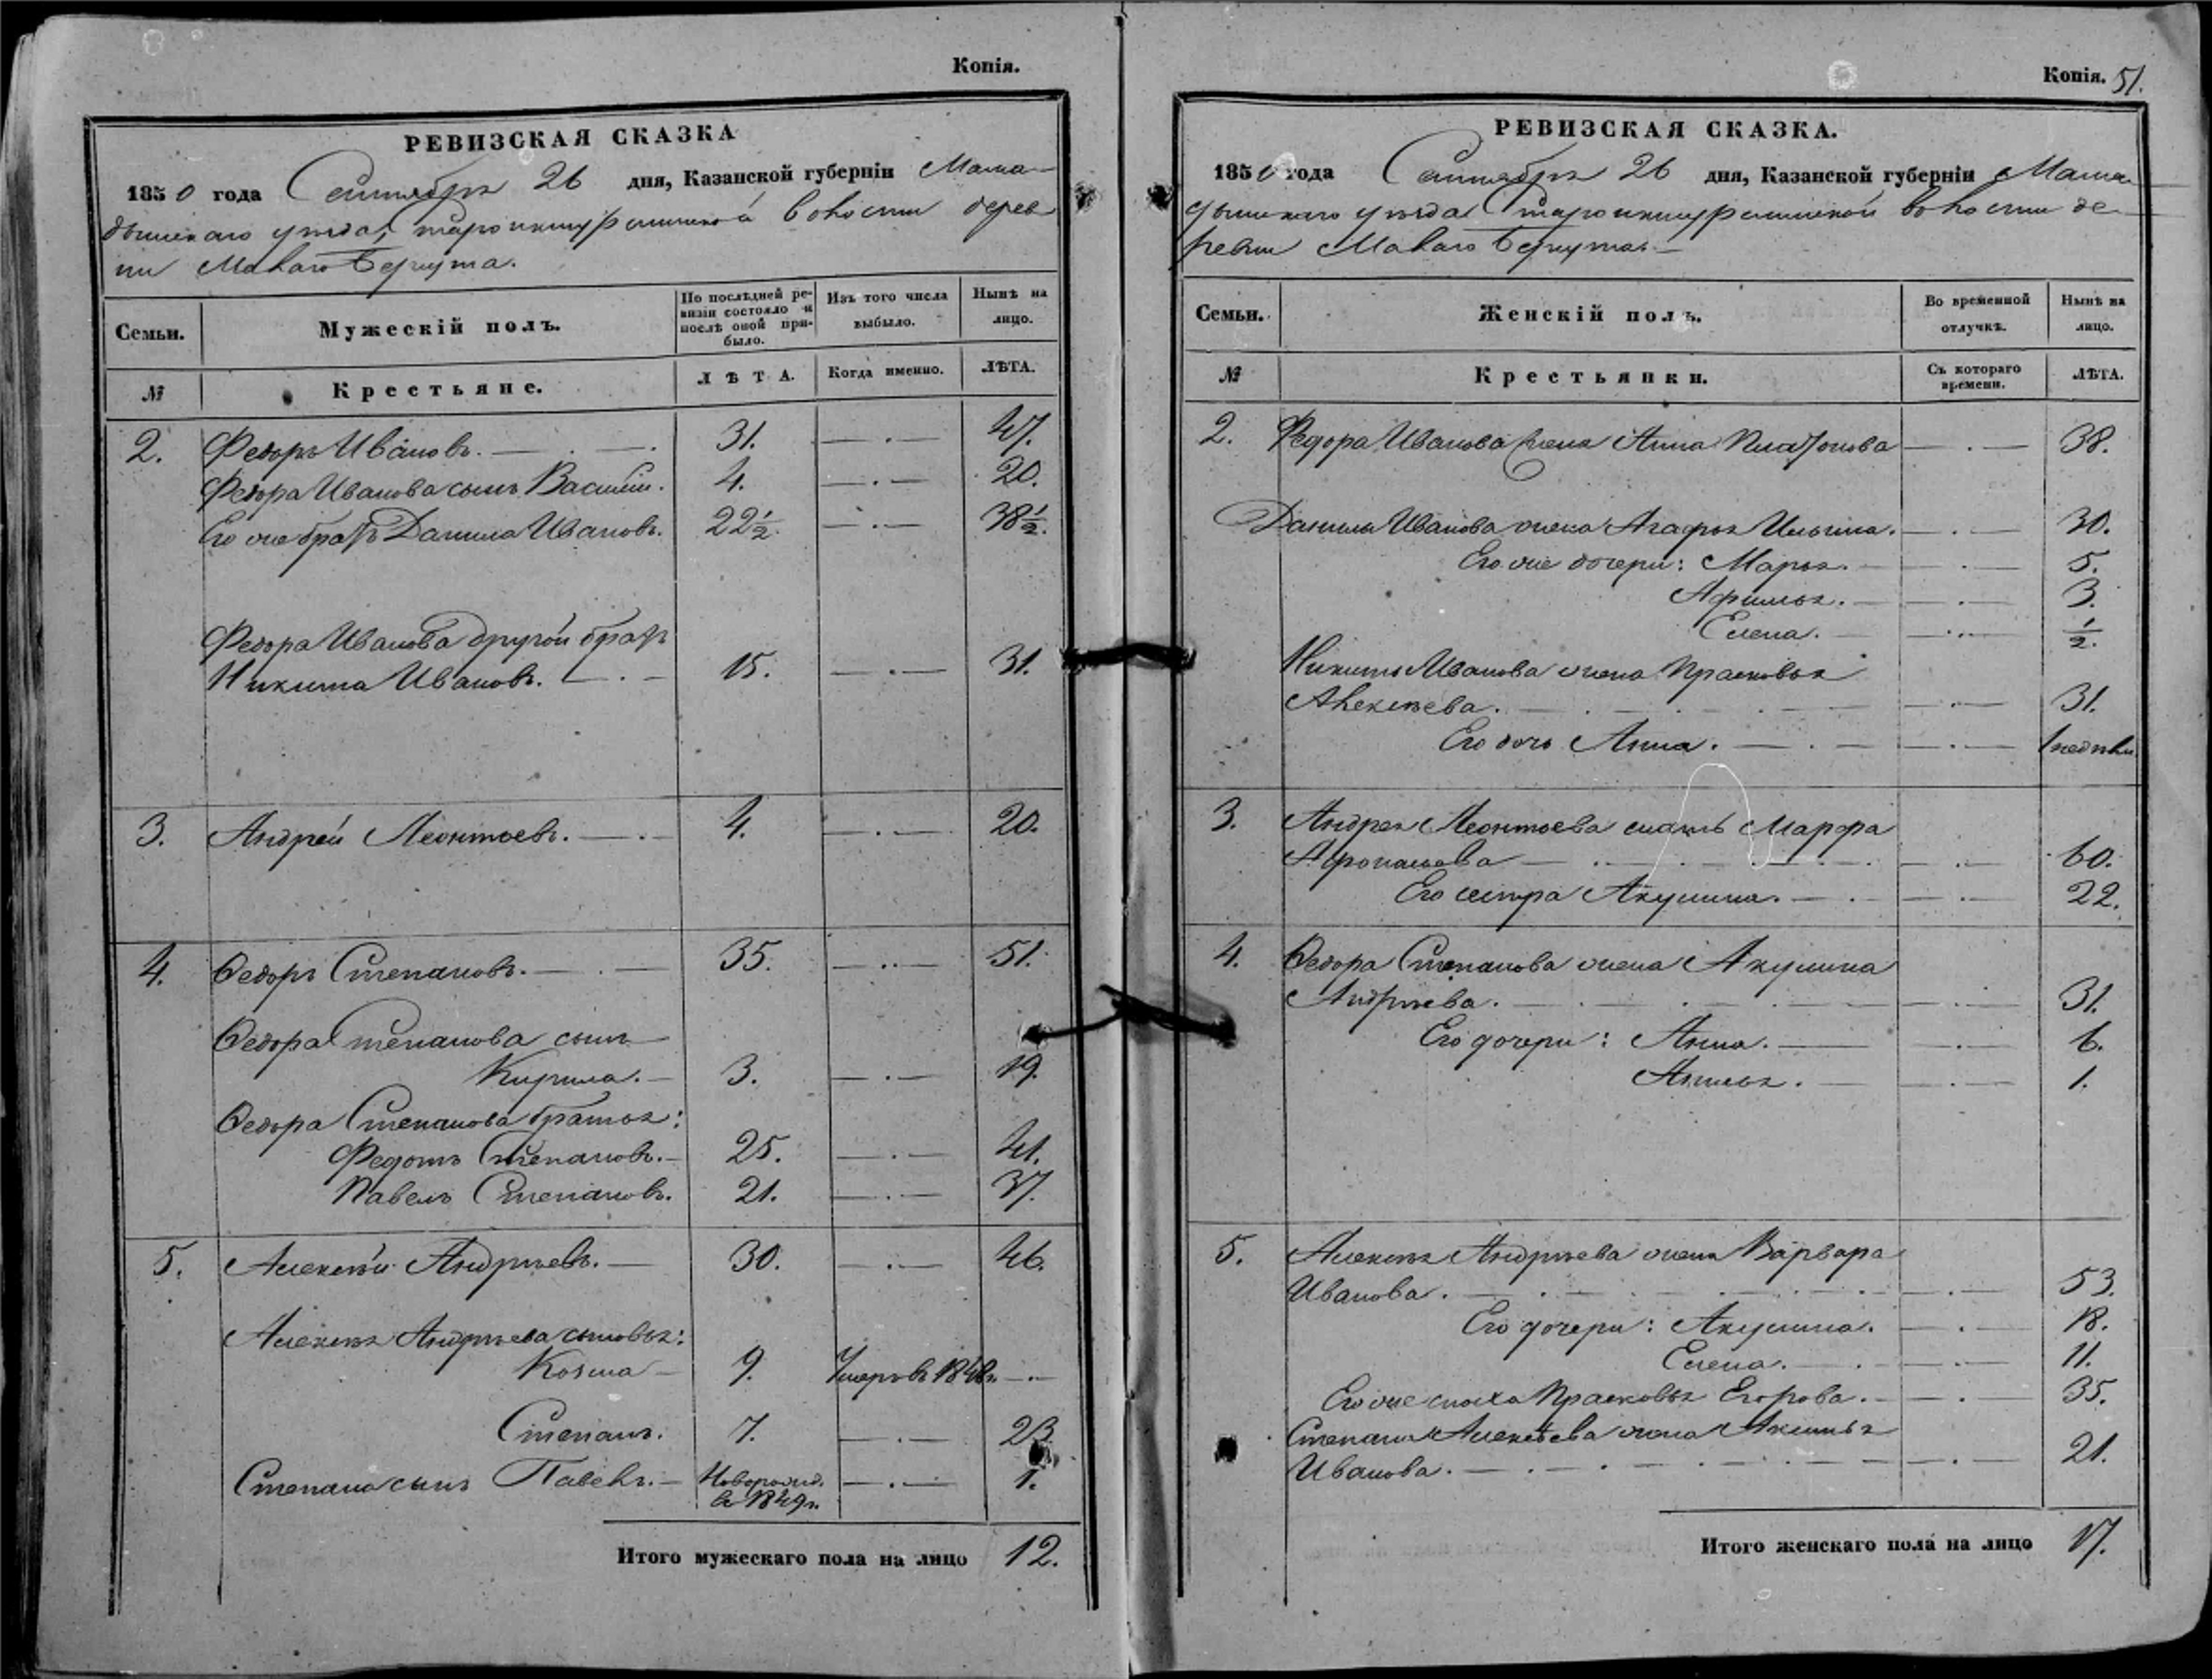 Копія.
РЕВИЗСКАЯ СКАЗКА
1850 года Сентября 26 дня, Казанской губерніи Мама-
дышскаго уѣзда, волости дерев
ни Малаго Берсута.
Семьи.
Мужескій полъ.
По послѣдней ре-
визіи состояло и
послѣ оной при-
было.
Изъ того числа
выбыло.
Нынѣ на
лицо.
№
Крестьяне.
ЛѢТА.
Когда именно.
ЛѢТА.
2. Федоръ Ивановъ. 31. 47.
Федора Иванова сынъ Василій. 4. 20.
Его же братъ Данила Ивановъ. 22½. 38½.
Федора Иванова другой братъ
Никита Ивановъ. 15. 31.
3. Андрей Леонтьевъ. 4. 20.
4. Ѳедоръ Степановъ. 35. 51.
Ѳедора Степанова сынъ
Кирила. 3. 19.
Ѳедора Степанова братья:
Федотъ Степановъ. 25. 41.
Павелъ Степановъ. 21. 37.
5. Алексѣй Андрѣевъ. 30. 46.
Алексѣя Андрѣева сыновья:
Козма 9. Умеръ въ 1848г.
Степанъ. 7. 23
Степана сынъ Павелъ. Новорожд. 1.
въ 1849г.
Итого мужескаго пола на лицо 12.
Копія. 51.
РЕВИЗСКАЯ СКАЗКА.
1850 года Сентября 26 дня, Казанской губерніи Мама
дышскаго уѣзда волости де
ревни Малаго Берсута.
Семьи.
Женскій полъ.
Во временной
отлучкѣ.
Нынѣ на
лицо.
№
Крестьянки.
Съ котораго
времени.
ЛѢТА.
2. Федора Иванова жена Анна Платонова 38.
Данилы Иванова жена Агафья Ильина. 30.
Его же дочери: Марья. 5.
Афимья. 3.
Елена. ½.
Никиты Иванова жена Прасковья
Алексѣева. 31.
Его дочь Анна. 1 недѣли
3. Андрея Леонтьева мать Марфа
Афонасьева 60.
Его сестра Акулина. 22.
4. Ѳедора Степанова жена Акулина
Андрѣева. 31.
Его дочери: Анна. 6.
1.
5. Алексѣя Андрѣева жена Варвара
Иванова. 53.
Его дочери: Акулина. 18.
Елена. 11.
Его же сноха Прасковья Егорова. 35.
Степана Алексѣева жена Аксинья
Иванова. 21.
Итого женскаго пола на лицо 17.